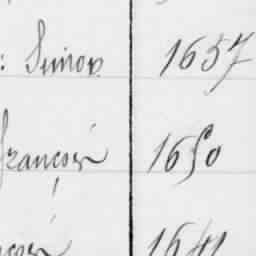 : Simon 1657
françois 1650
1641